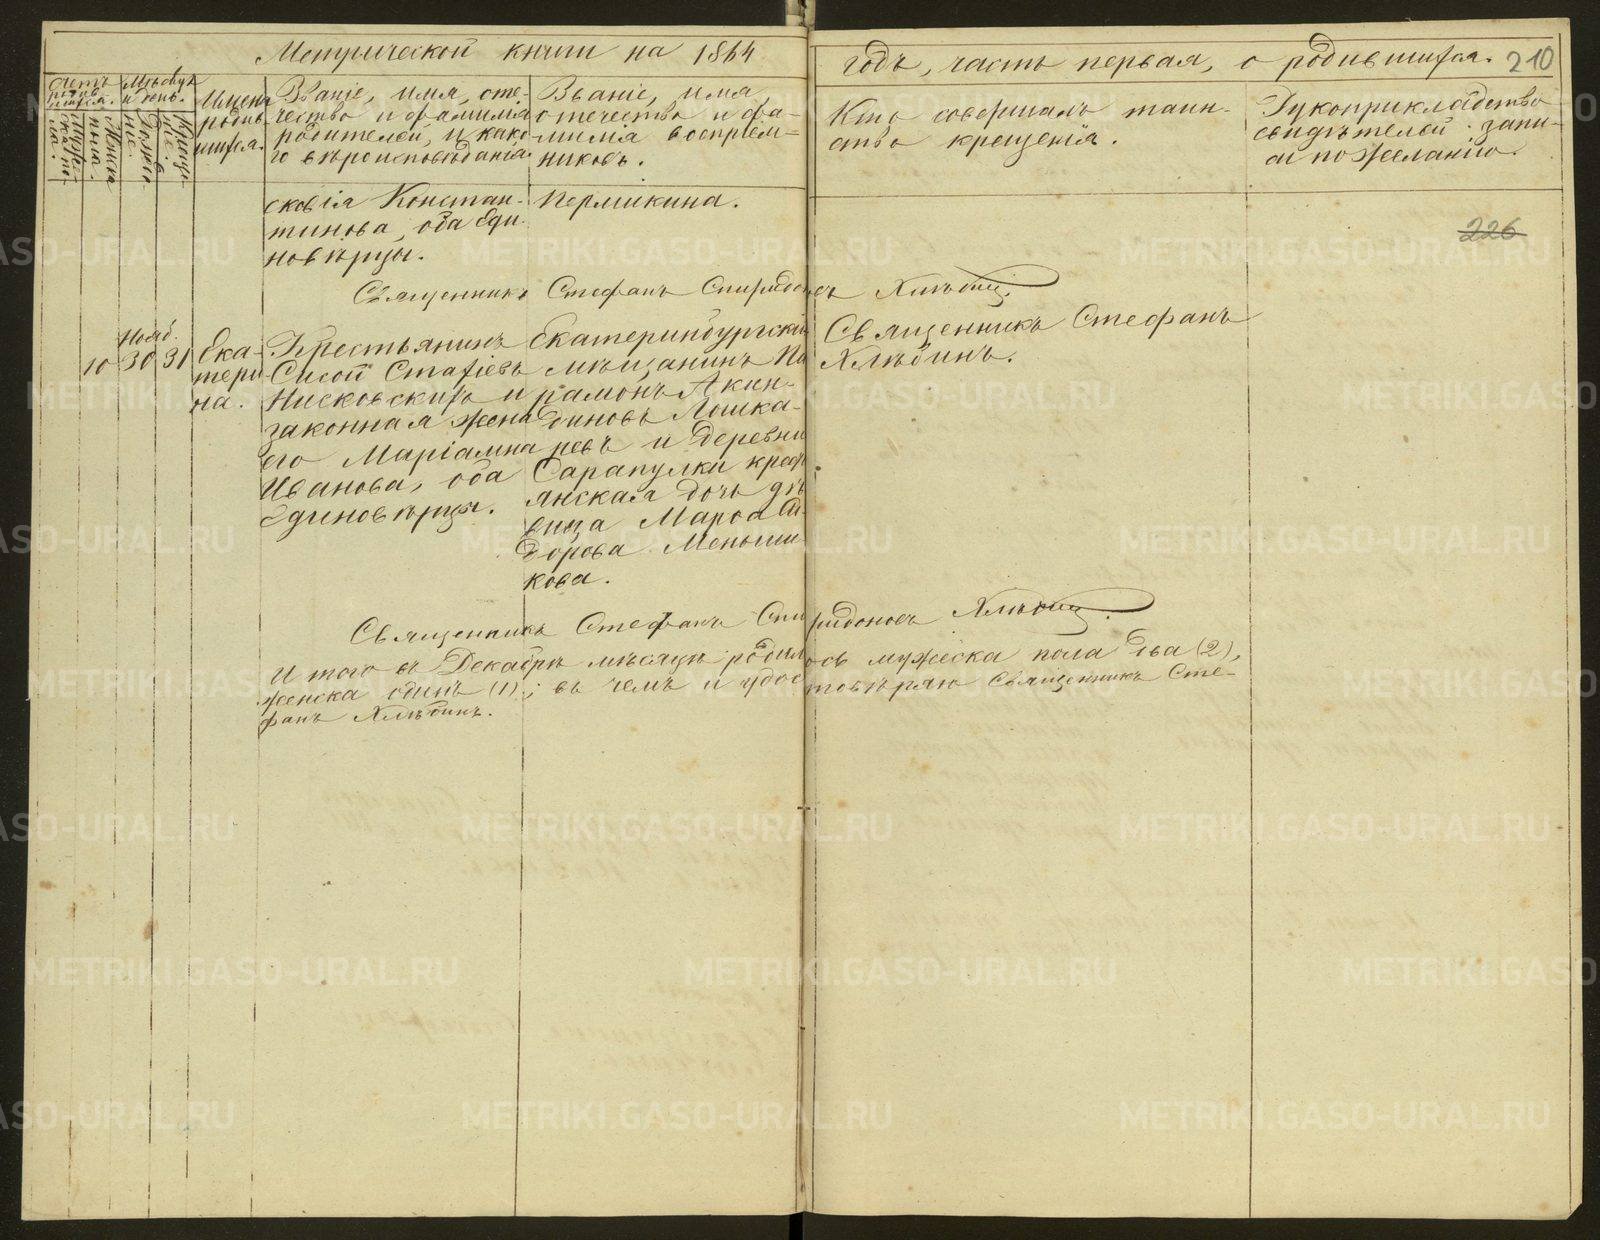 Метрической книги на 1864
годъ, часть первая, о родившихся. 210
Счетъ родив-шихся.
Мужеска пола.
Женска пола.
Мѣсяцъ и день.
Рожденіе.
Крещеніе.
Имена родив-шихся.
Званіе, имя, оте-
чество и фамилія
родителей, и како-
го вѣроисповѣданія.
Званіе, имя
отечество и фа-
милія воспріем-
никовъ.
Кто совершалъ таин-
ство крещенія.
Рукоприкладство
свидѣтелей запи-
си по желанію.
226
сковія Констан-
тинова, оба еди-
новѣрцы.
Пермикина.
Священникъ Стефанъ Спиридоновъ Хлѣбинъ.
10
Нояб.
30 31
Ека-
тери
на.
Крестьянинъ
Сисой Стахіевъ
Нисковскихъ и
законная жена
его Маріамна
Иванова, оба
единовѣрцы.
Екатеринбургскій
мѣщанинъ Па
рамонъ Акин-
диновъ Лошка-
ревъ и деревни
Сарапулки крест
янская дочь дѣ
вица Марѳа Си-
дорова Меньши
кова.
Священникъ Стефанъ
Хлѣбинъ.
Священникъ Стефанъ Спиридоновъ Хлѣбинъ.
И того въ Декабрѣ мѣсяцѣ родилось мужеска пола два (2),
женска одинъ (1); въ чемъ и удостовѣряю Священникъ Сте-
фанъ Хлѣбинъ.
METRIKI.GASO-URAL.RU